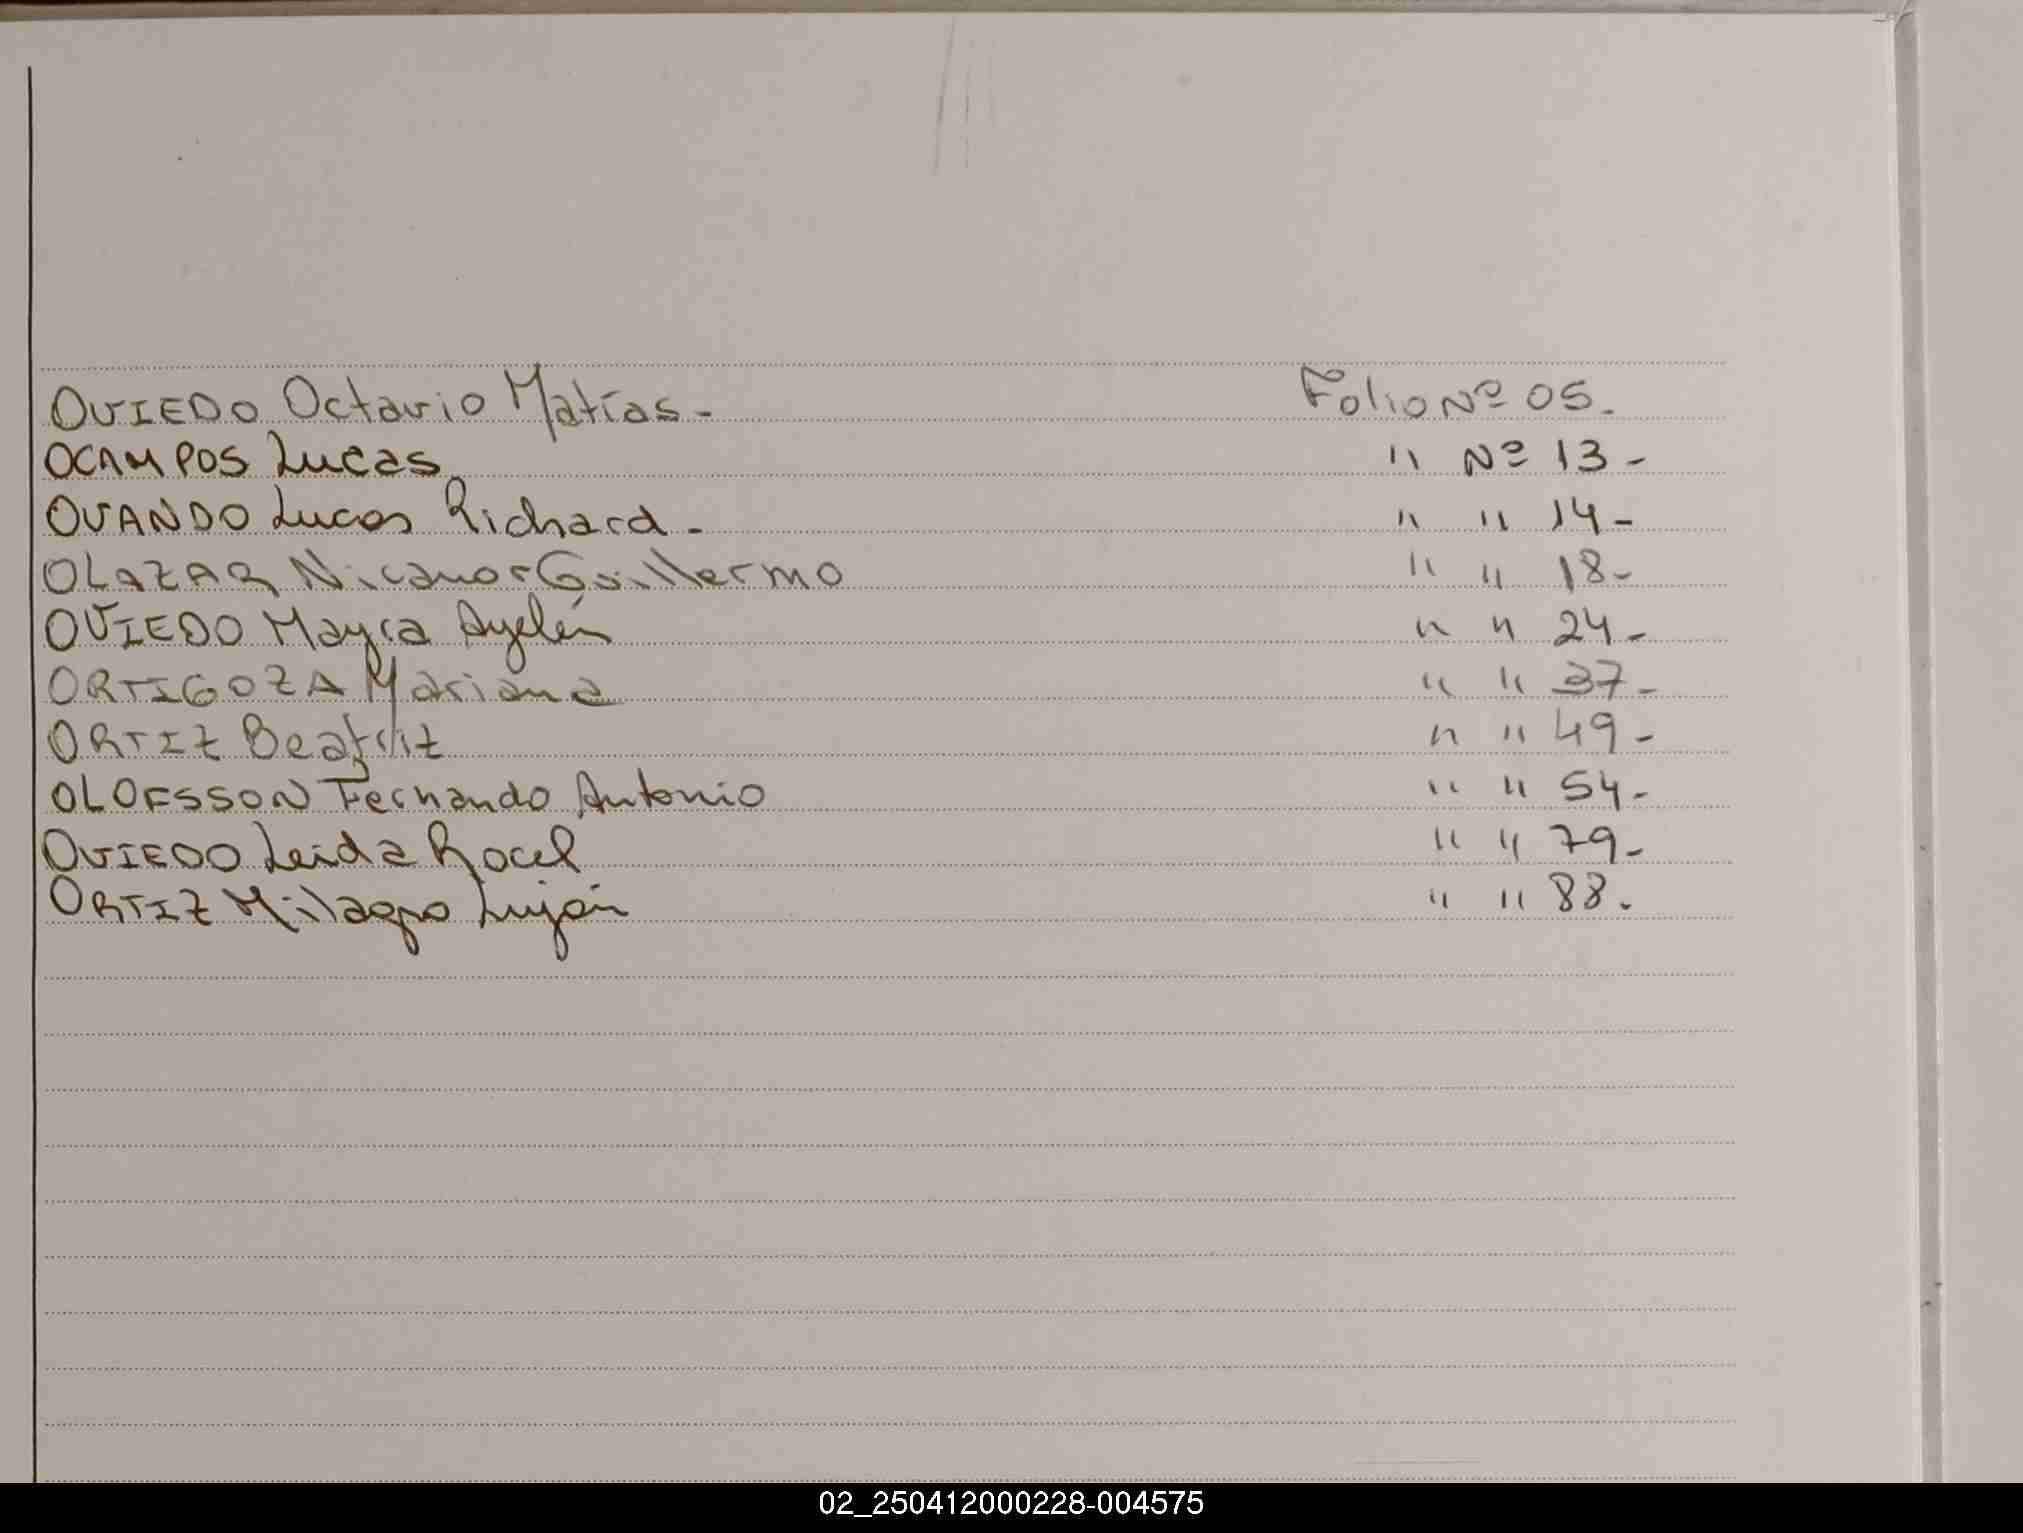 OVIEDO Octavio Matías - Folio Nº 05.
OCAMPOS Lucas. " Nº 13 -
OVANDO Lucas Richard - " " 14 -
OLAZAR Nicanor Guillermo " " 18 -
OVIEDO Mayra Ayelén " " 24 -
ORTIGOZA Mariana " " 37 -
ORTIZ Beatriz " " 49 -
OLOFSSON Fernando Antonio " " 54 -
OVIEDO Leida Rocel " " 79 -
ORTIZ Milagro Luján " " 88.
02_250412000228-004575